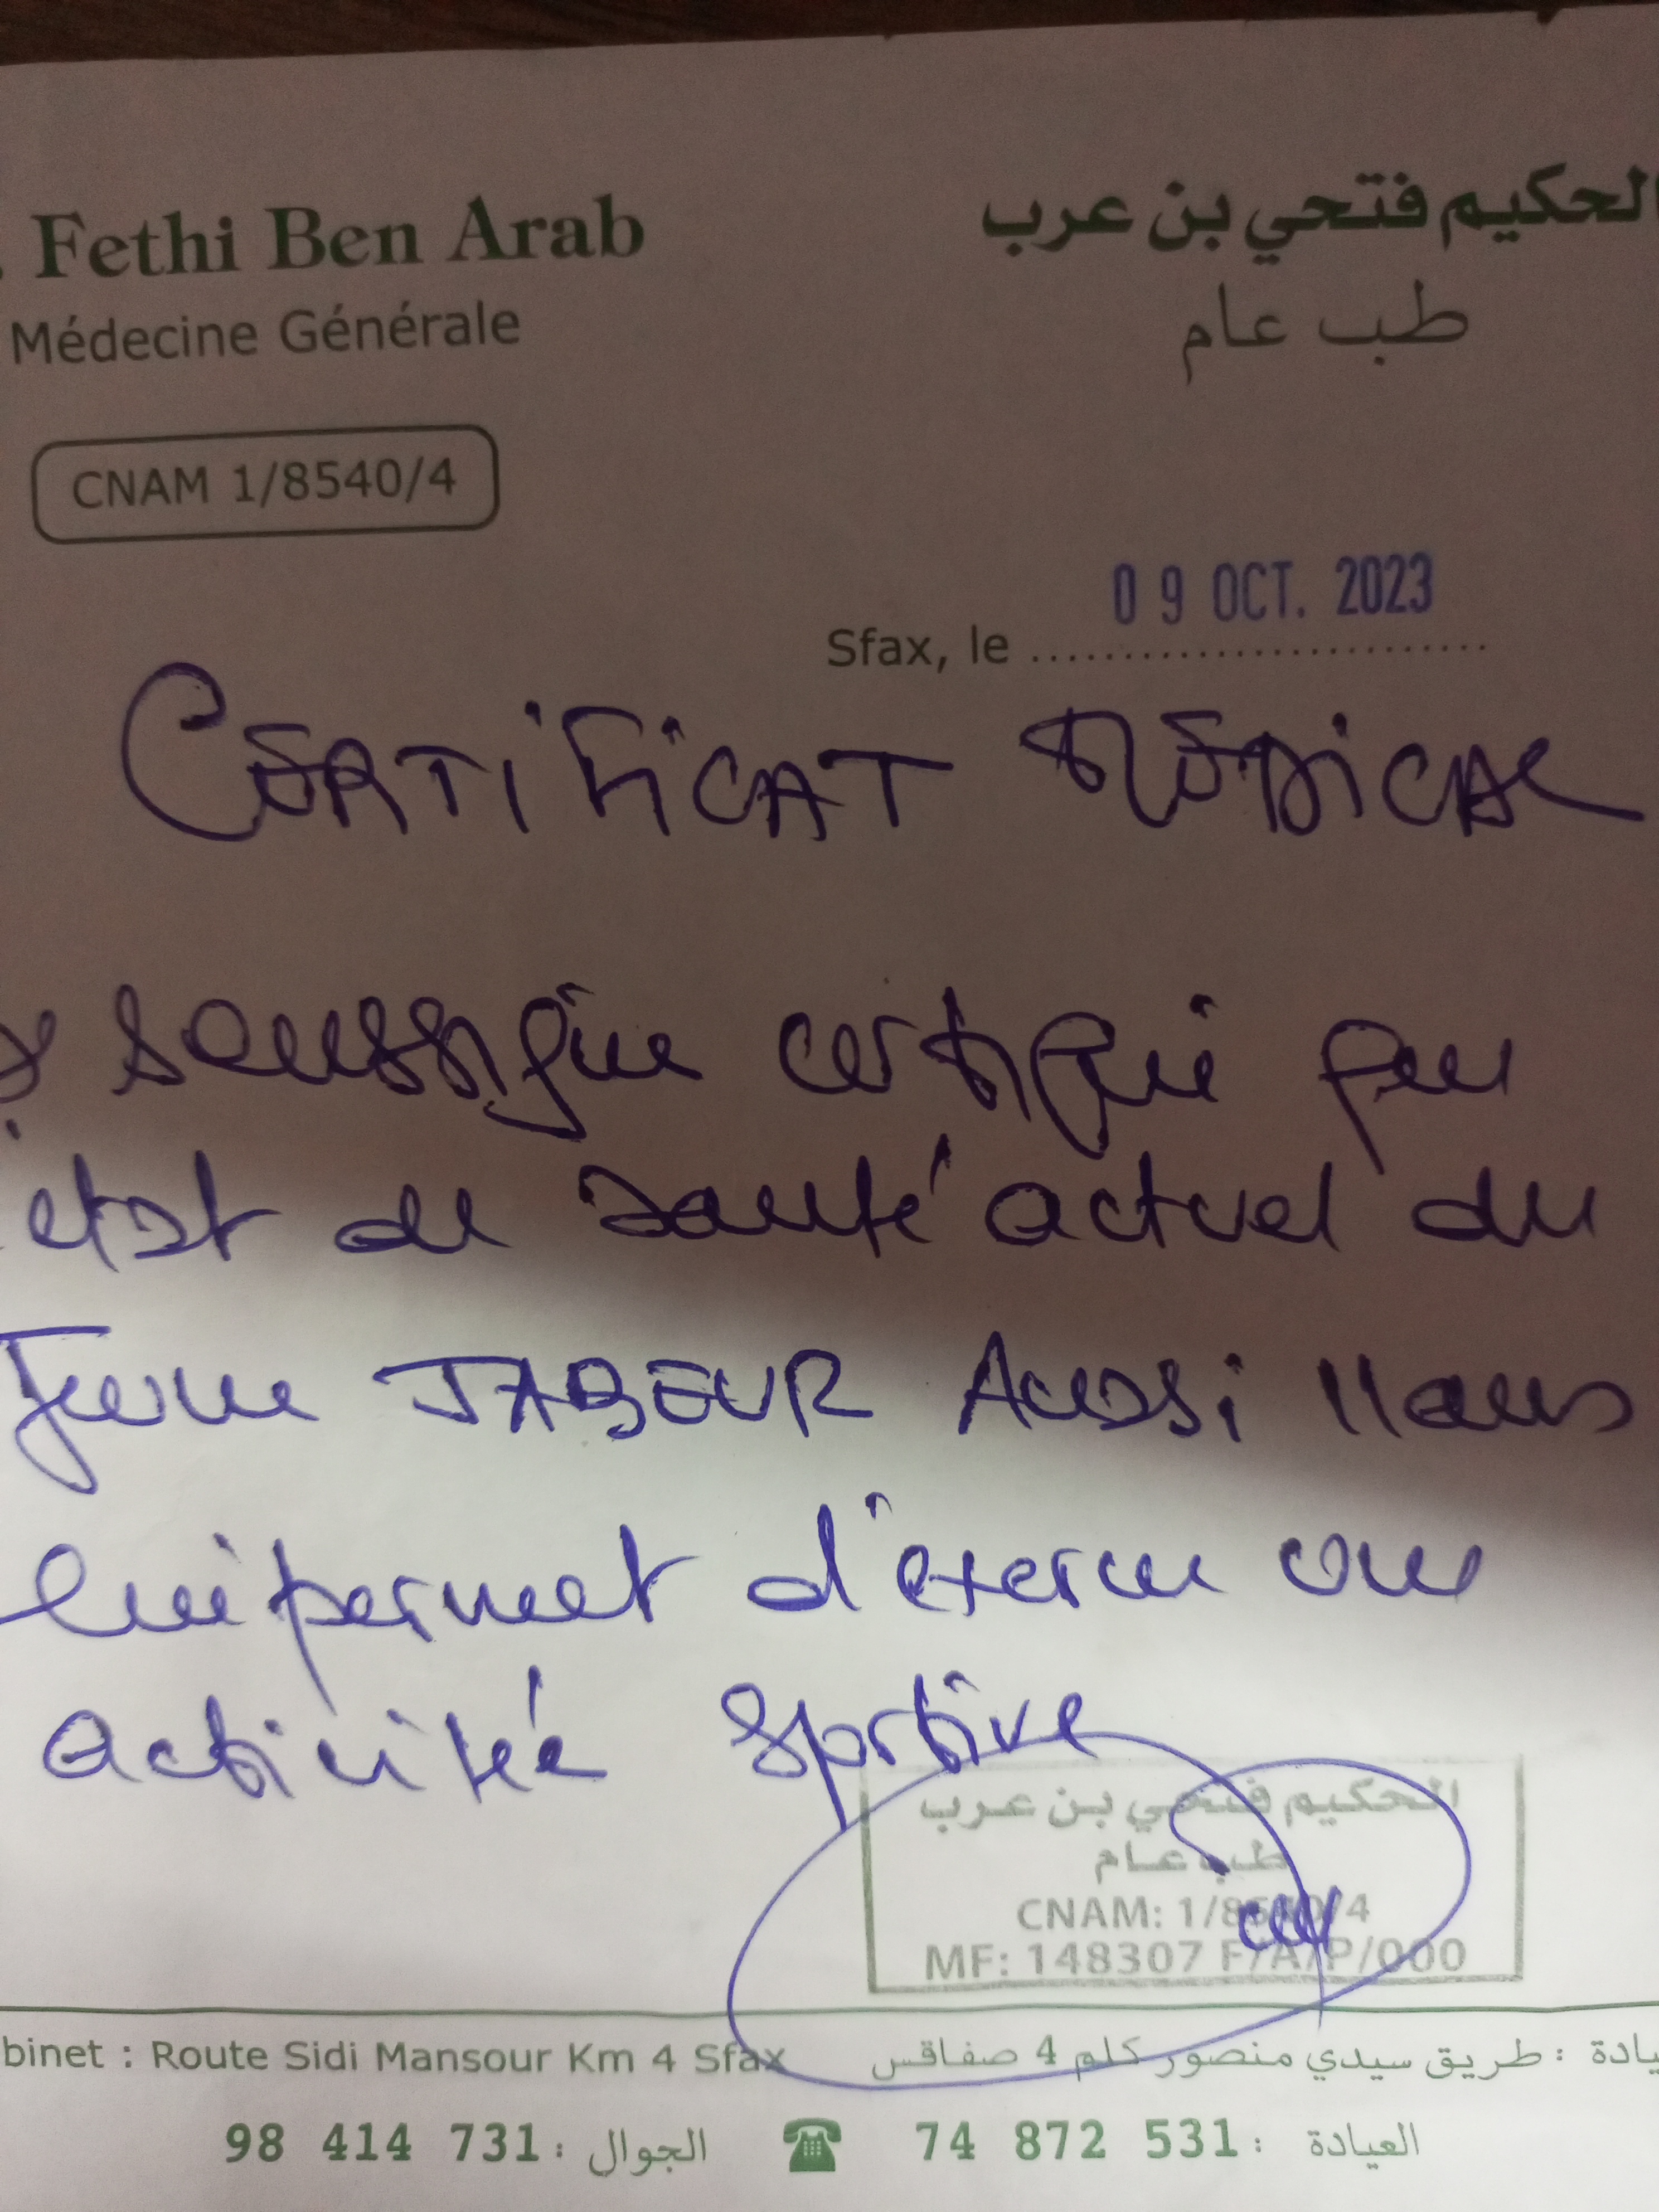 . Fethi Ben Arab
الحكيم فتحي بن عرب
Médecine Générale
طب عام
CNAM 1/8540/4
09 OCT. 2023
Sfax, le
CERTIFICAT MÉDICAL
soussigné certifie que
état de santé actuel du
Jeune JABEUR Aussi 11ans
lui permet d'exercer une
activitée sportive
الحكيم فتحي بن عرب
طب عام
CNAM: 1/8540/4
MF: 148307 F/A/P/000
binet : Route Sidi Mansour Km 4 Sfax
يادة : طريق سيدي منصور كلم 4 صفاقس
98 414 731 : الجوال
74 872 531 : العيادة